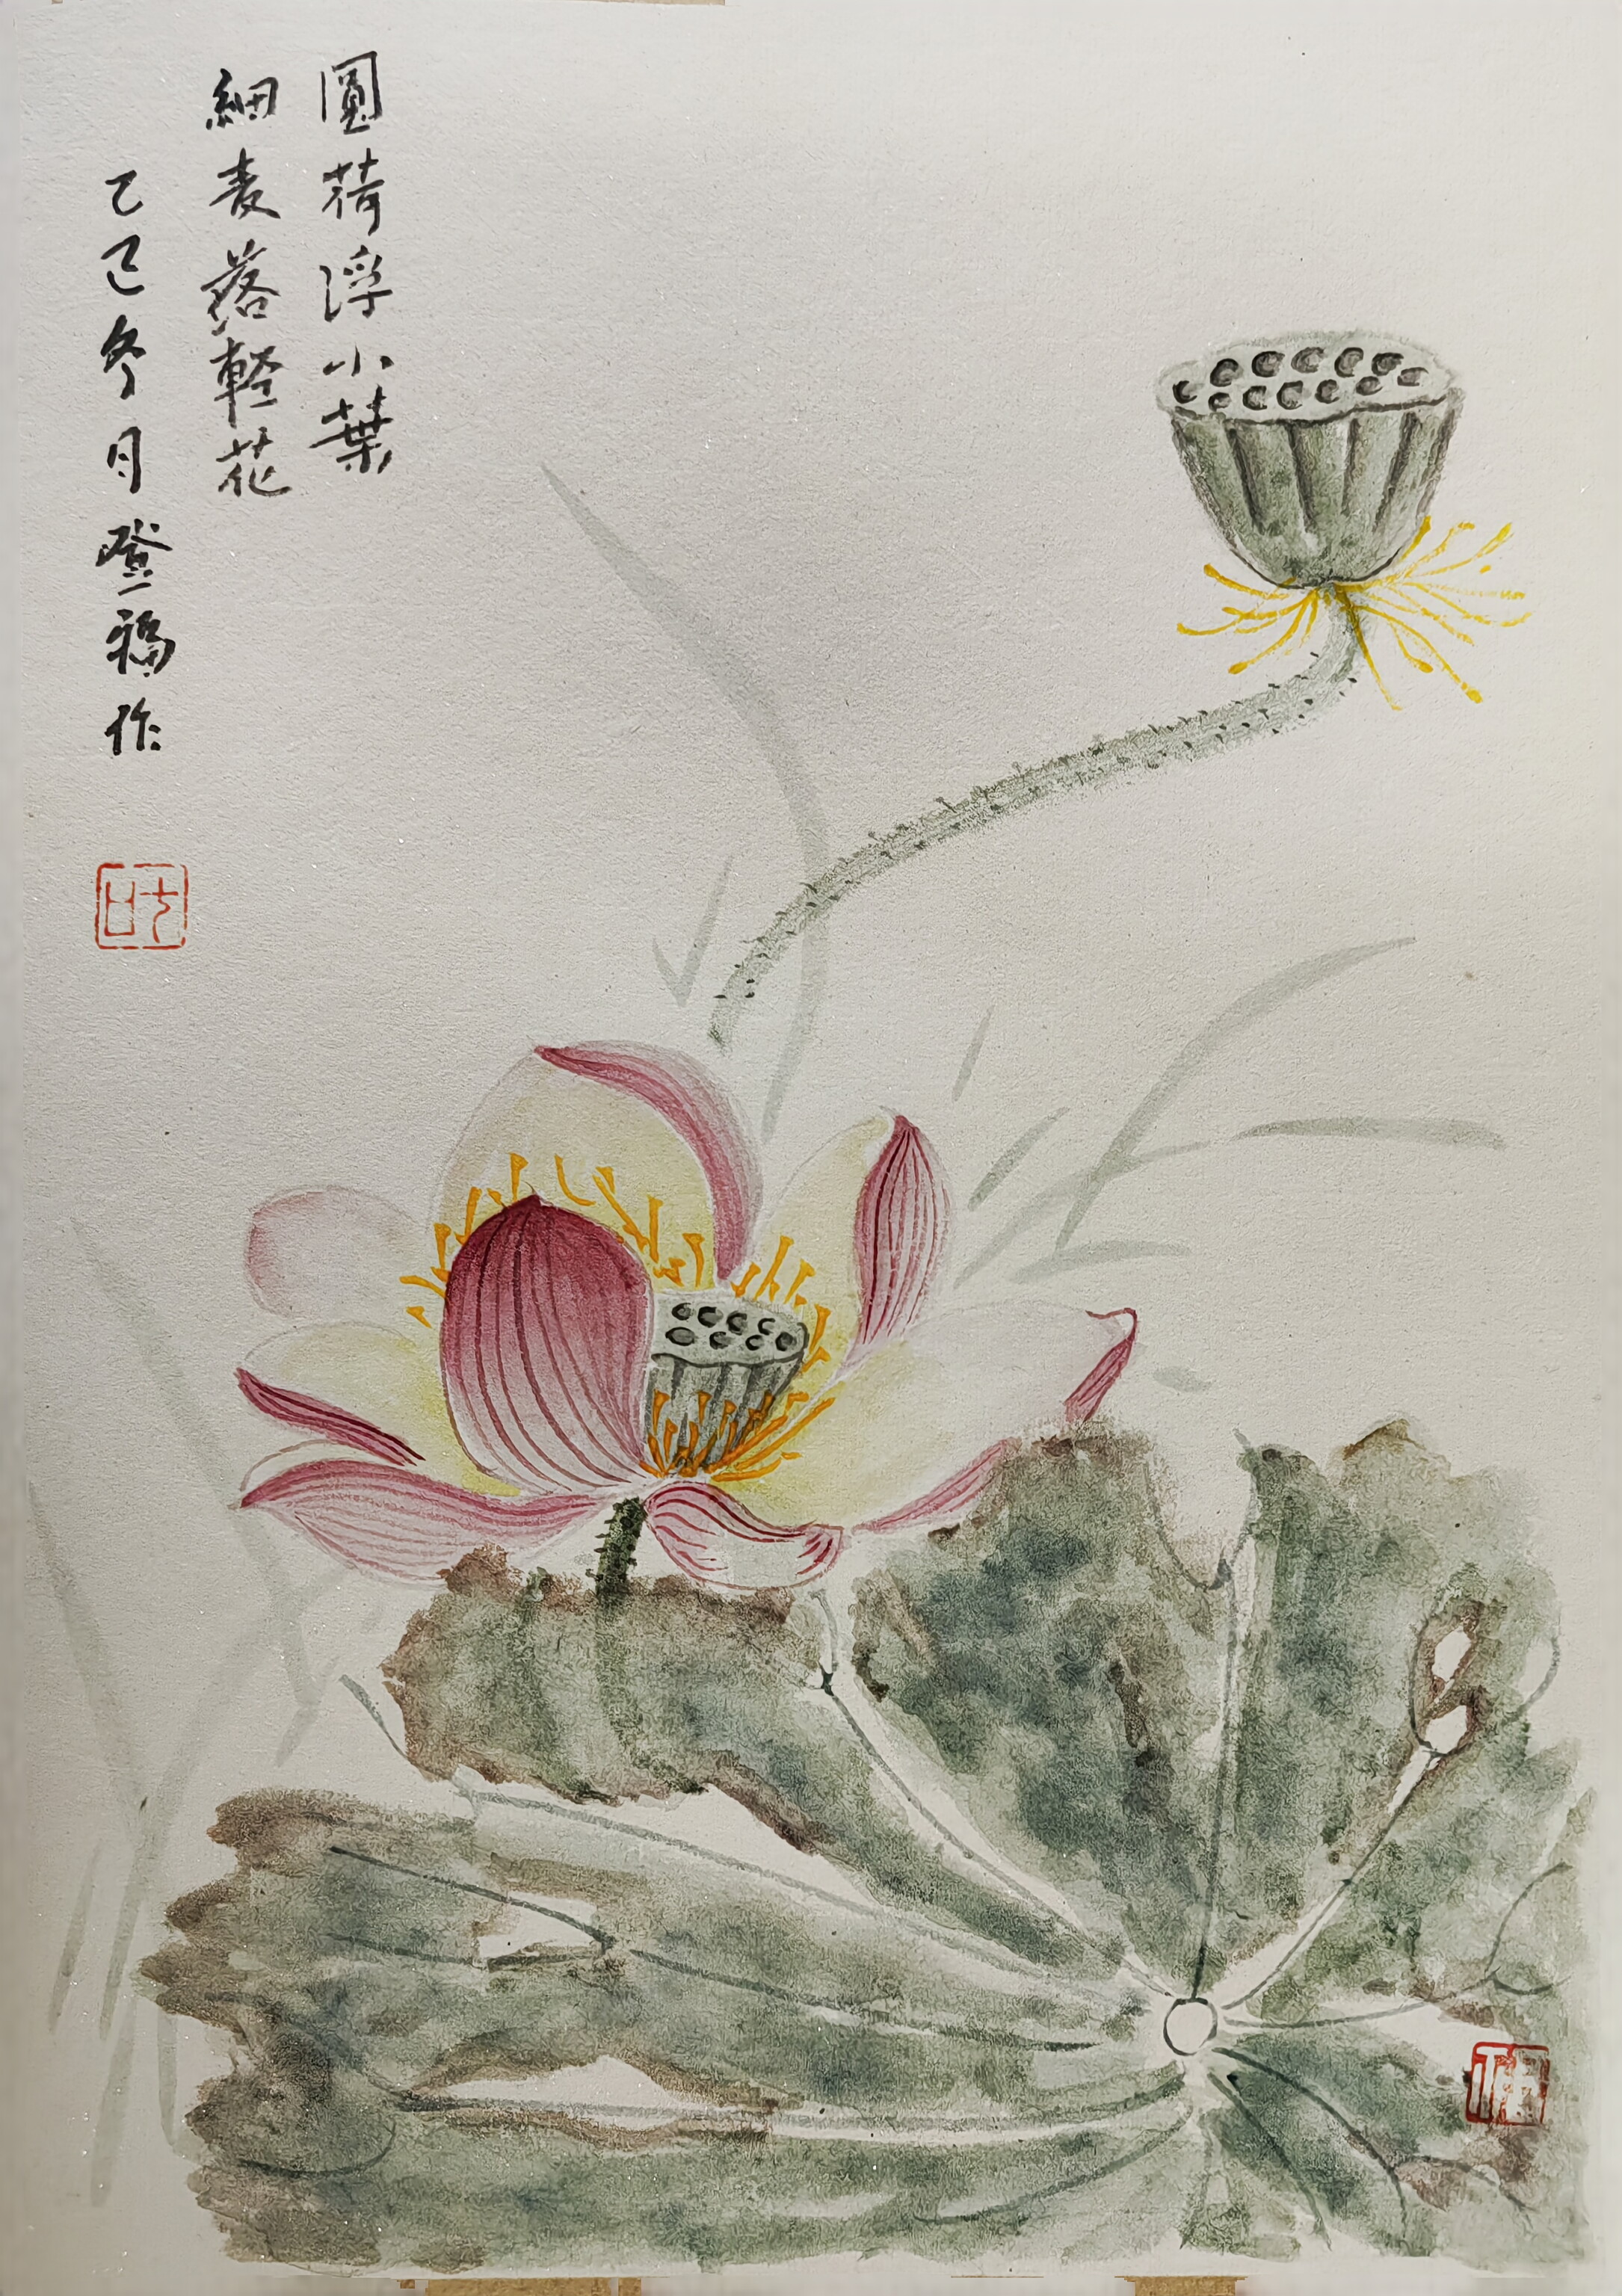 圓荷浮小葉
細麦落軽花
乙巳冬月登福作